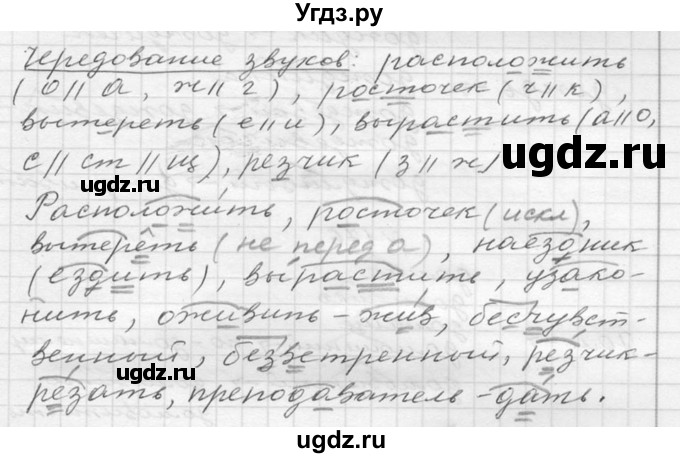 Угдз.ру
Чередование звуков: расположить
(о//а, ж//г), росточек (ч//к),
вытереть (е//и), вырастить (а//о,
с//ст//щ), резчик (з//ж)
Расположить, росточек (искл),
вытереть (не перед а), наездник
(ездить), вырастить, узако-
нить, оживить – жив, бесчувст-
венный, безветренный, резчик -
резать, преподаватель – дать.
gdz.ru
ugdz.ru
gdz.ru
ugdz.ru
gdz.ru
ugdz.ru
ugdz.ru